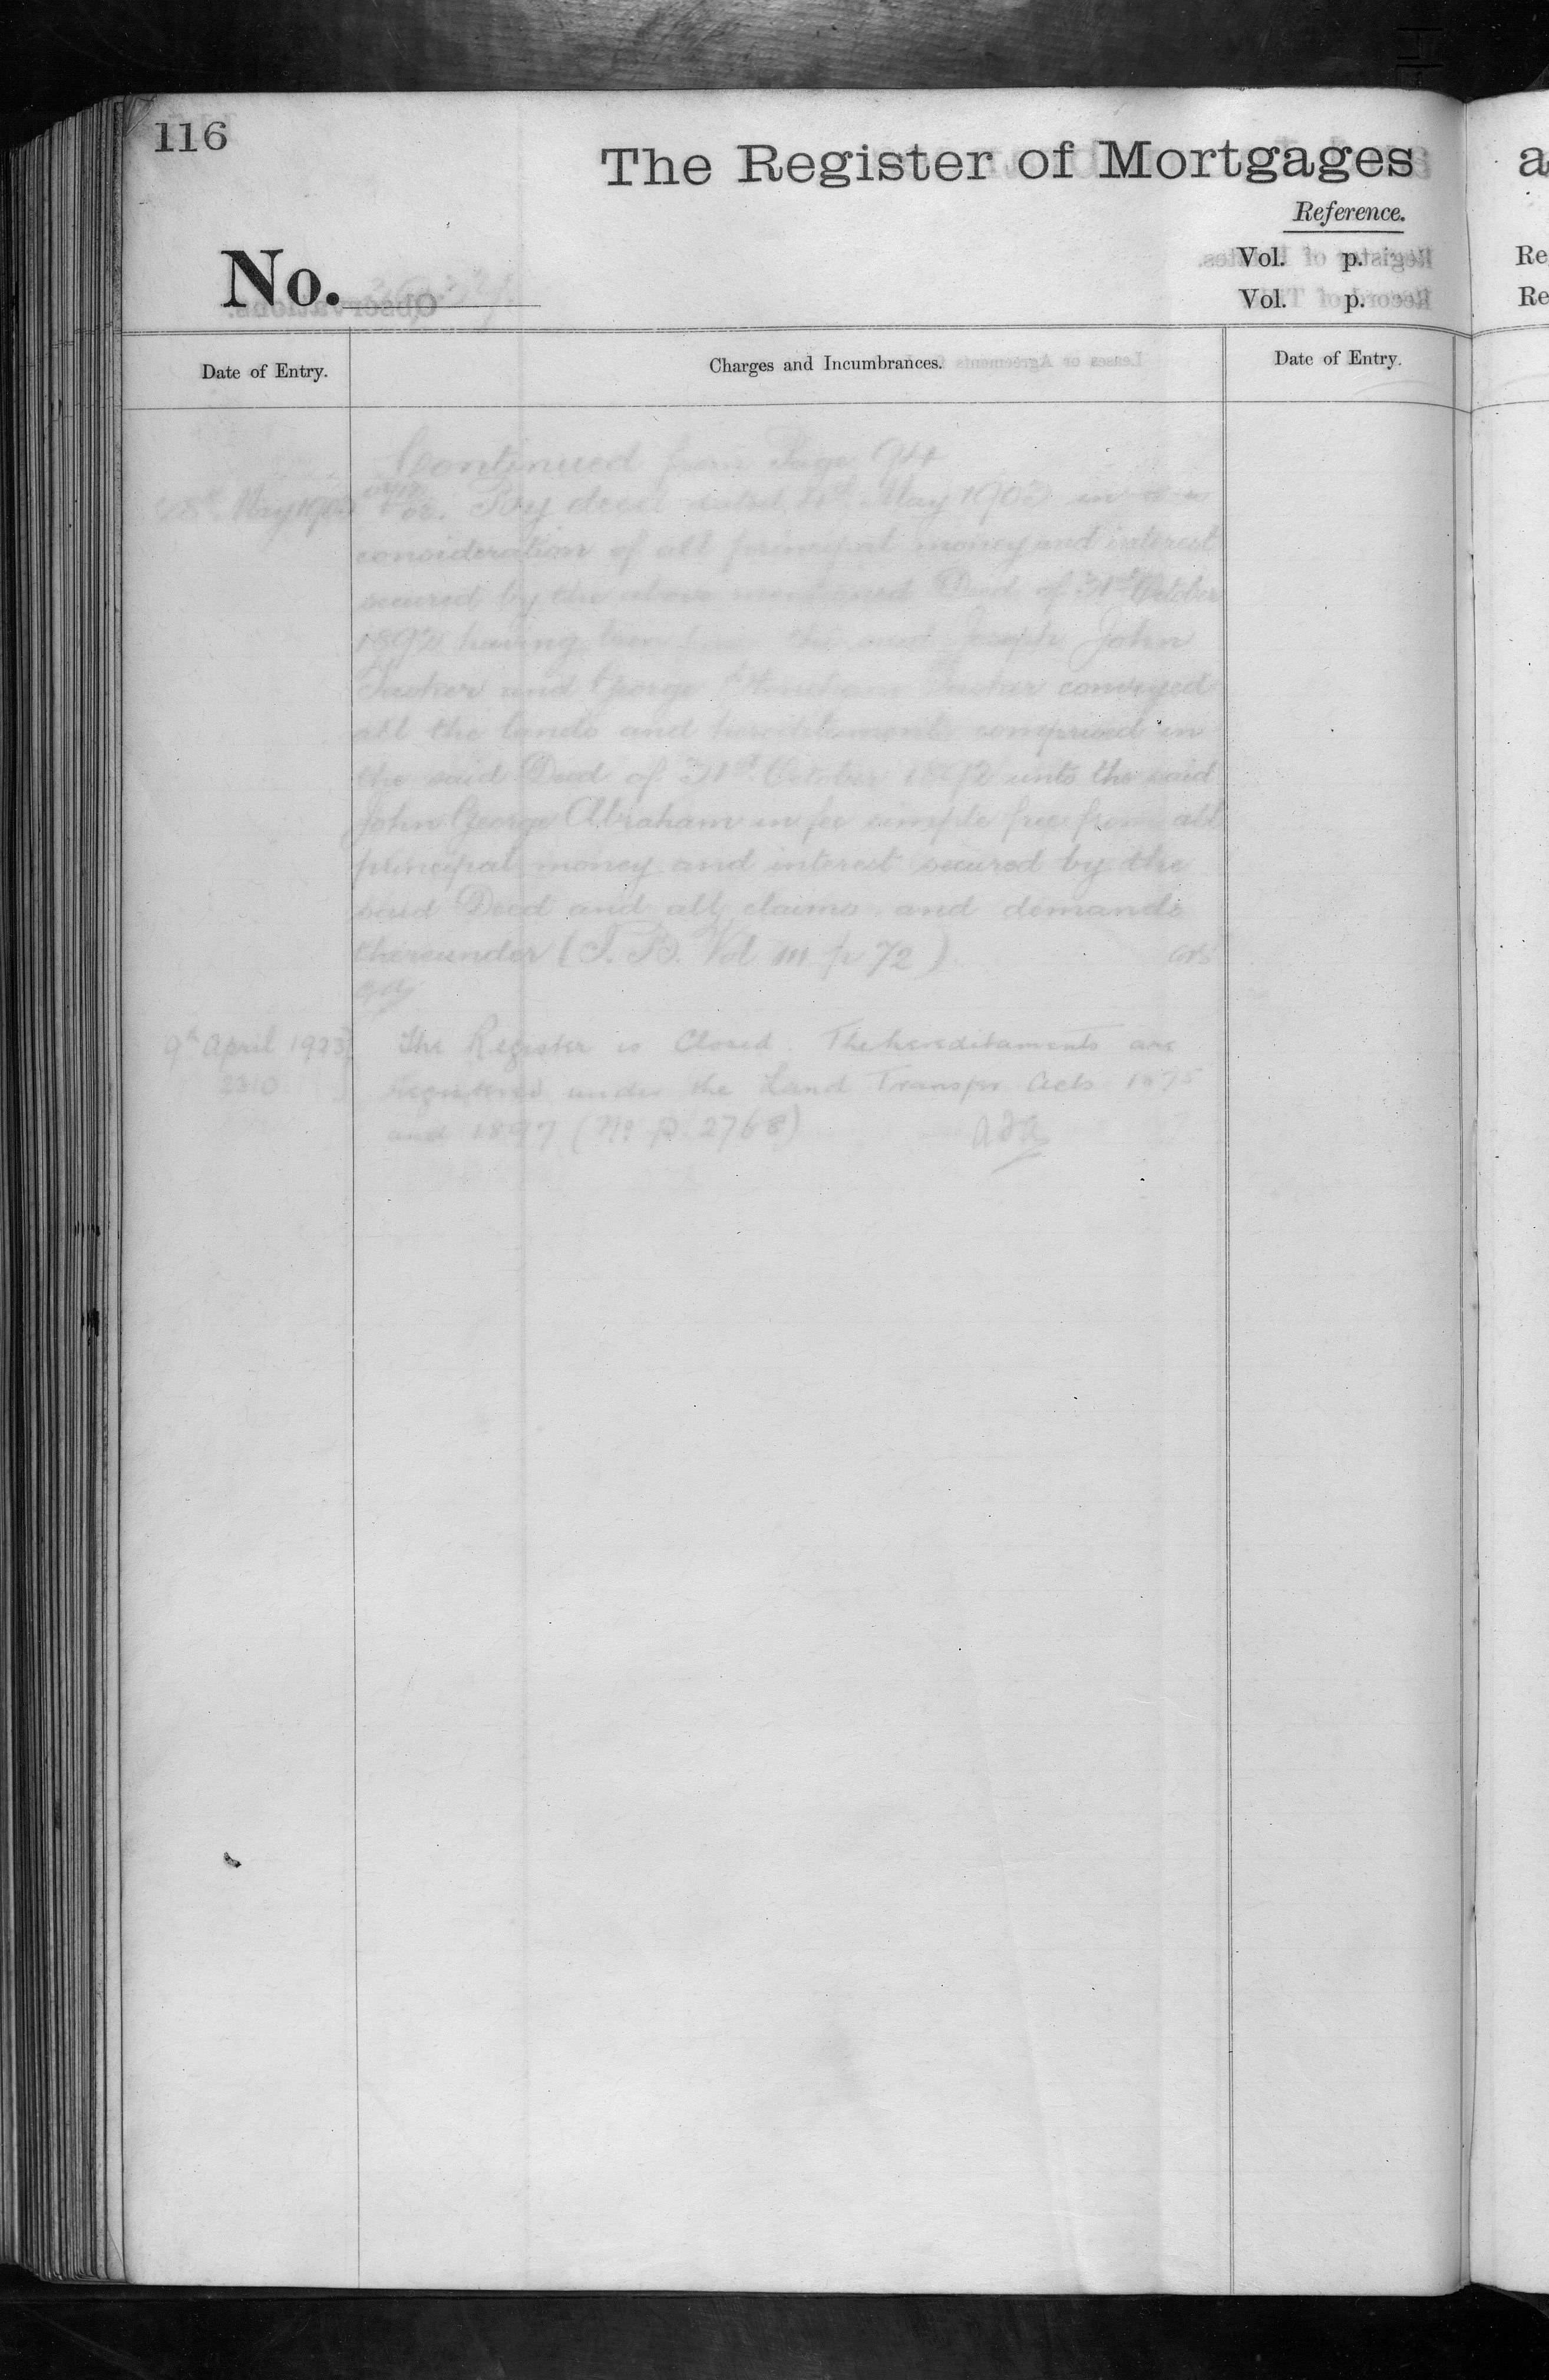 116
The Register of Mortgages
a
Reference.
Vol. p.
Re
Vol. p.
Re
No.
Date of Entry.
Charges and Incumbrances.
Date of Entry.
Continued from Page 94
May 190 By deed dated May 1903 in
consideration of all principal money and interest
secured by the above mentioned Deed of 31st October
1892 having been the said Joseph John
Tasker and George Tasker conveyed
all the lands and hereditaments comprised in
the said Deed of 31st October 1892 unto the said
John George Abraham in fee simple free from all
principal money and interest secured by the
said Deed and all claims and demands
thereunder (T. B. Vol. III p 72)
9th April 1923 The Register is Closed. The hereditaments are
2310 registered under the Land Transfer Acts 1875
and 1897 (No P. 2768)